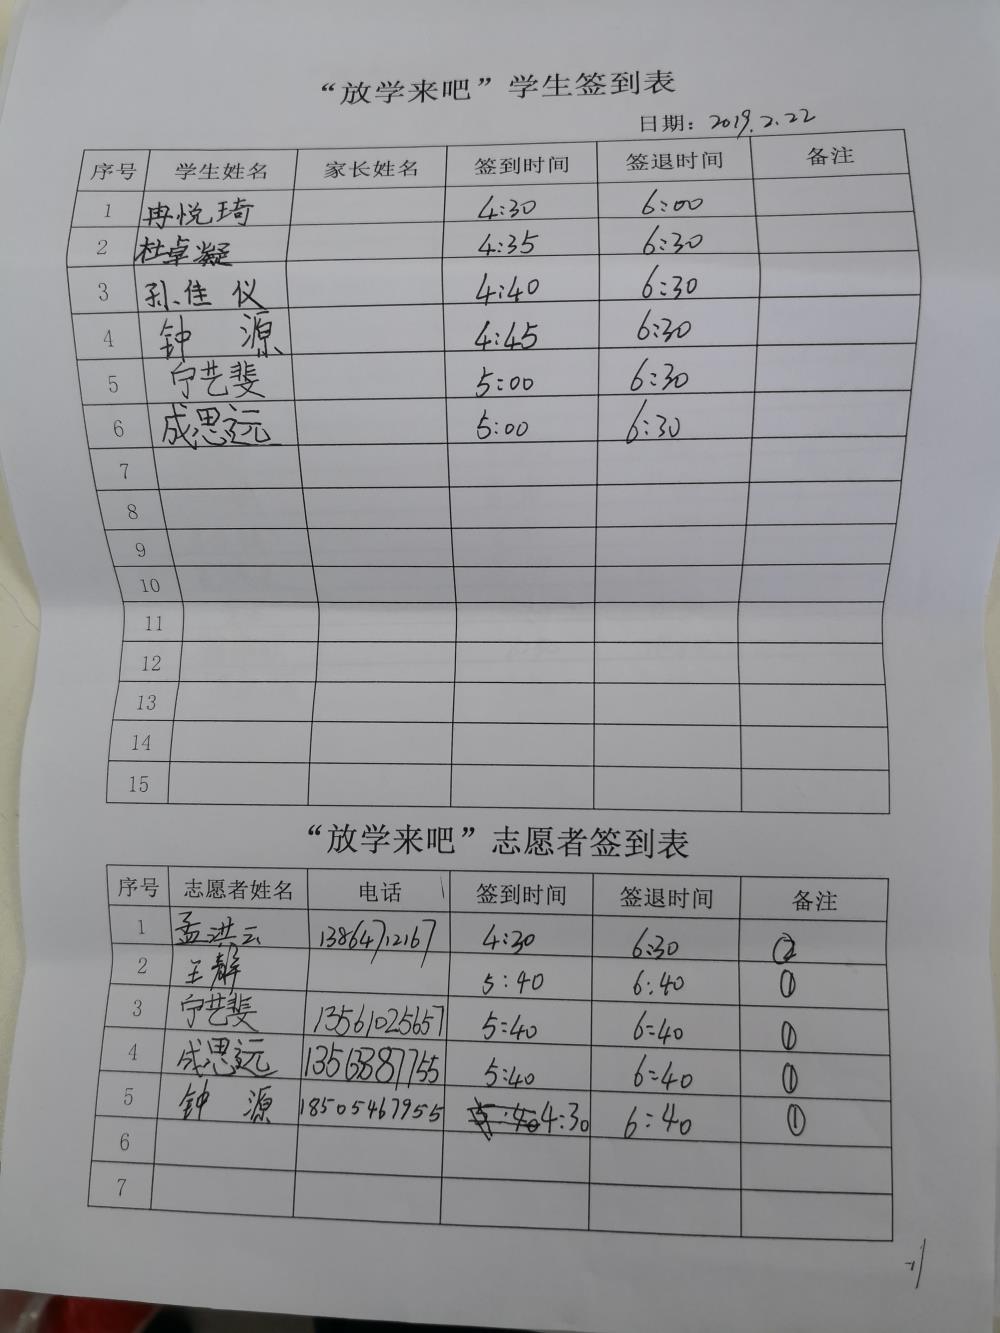 “放学来吧”学生签到表
日期：2019.2.22
序号 学生姓名 家长姓名 签到时间 签退时间 备注
1 冉悦琦 4:30 6:00
2 杜卓凝 4:35 6:30
3 孙佳仪 4:40 6:30
4 钟源 4:45 6:30
5 宁艺斐 5:00 6:30
6 成思远 5:00 6:30
7
8
9
10
11
12
13
14
15
“放学来吧”志愿者签到表
序号 志愿者姓名 电话 签到时间 签退时间 备注
1 孟洪云 13864712167 4:30 6:30 ②
2 王静 5:40 6:40 ①
3 宁艺斐 13561025657 5:40 6:40 ①
4 成思远 5:40 6:40 ①
5 钟源 18505467955 4:30 6:40 ①
6
7